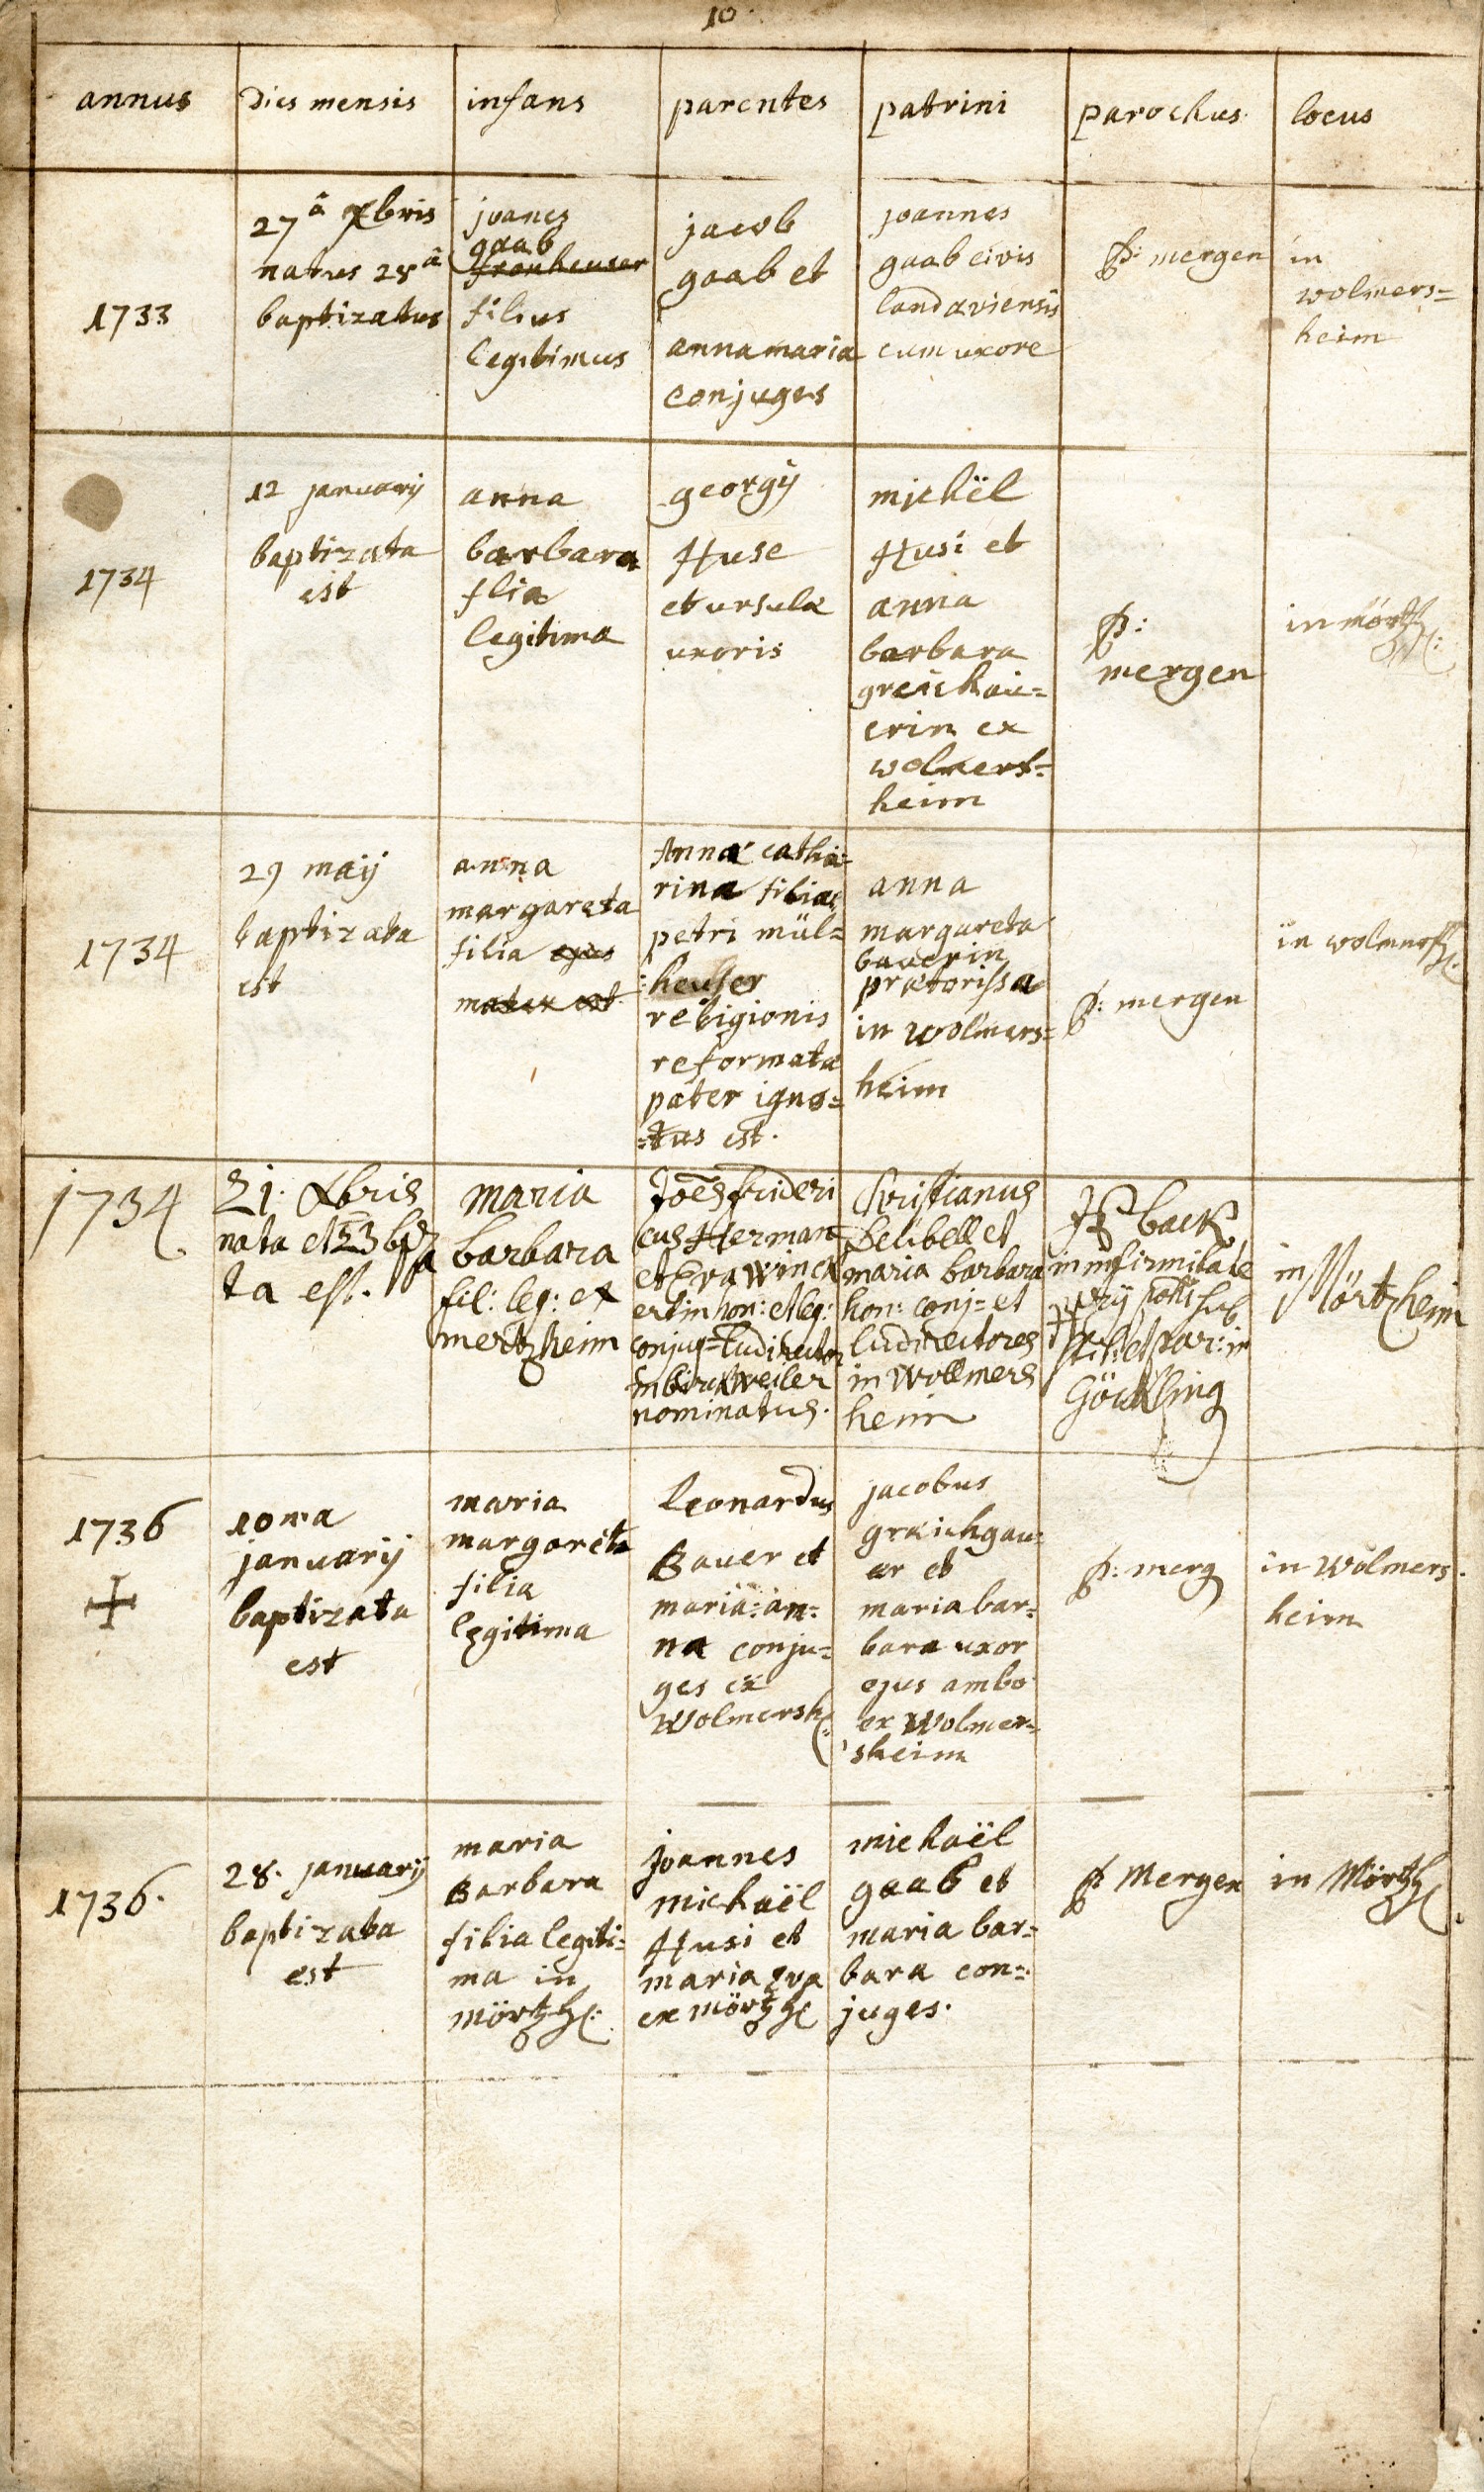 10.
annus
Dies mensis
infans
parentes
patrini
parochus
locus
1733
27â xbris
natus 28â
baptizatus
joanes
gaab
fronheuser
filius
legitimus
jacob
gaab et
anna maria
conjuges
joannes
gaab civis
landaviensis
cum uxore
P: mergen
in
wolmers=
heim
1734
12 januarij
baptizata
est
anna
barbara
flia
legitima
georgij
Huse
et ursula
uxoris
michël
Husi et
anna
barbara
greichau=
erin ex
wolmers=
heim
P:
mergen
in mörtzh:
1734
29 maij
baptizata
est
anna
margareta
filia ejus
mater est
Anna catha=
rina filia
petri mül=
:heuser
religionis
reformata
pater igno=
=tus est.
anna
margareta
bauerin
prætorissa
in wolmers=
heim
P: mergen
in wolmersh:
1734
21. Xbris
nata et 23 bpa
ta est.
maria
barbara
fil: leg: ex
mertzheim
Joēs frideri
cus Herman
et Eva Winck
erlin hon: et leg:
conjug= ludirector
in birckweiler
nominatus.
Christianus
Belibell et
maria barbara
hon: conj= et
ludirectores
in Wollmers
heim
JP back
in infirmitate
par: in
Göckling
in Mörtzheim
1736
10ma
januarij
baptizata
est
maria
margareta
filia
legitima
Leonardus
Bauer et
maria: an=
na conju=
ges ex
Wolmersh:
jacobus
graichgau=
er et
maria bar=
bara uxor
ejus ambo
ex Wolmer=
sheim
P: merg
in Wolmers
heim
1736.
28. januarij
baptizata
est
maria
Barbara
filia legiti=
ma in
mörtzh:
joannes
michaël
Husi et
maria Eva
ex mörtzh
michaël
gaab et
maria bar=
bara con=
juges.
P Mergen
in Mörtzh